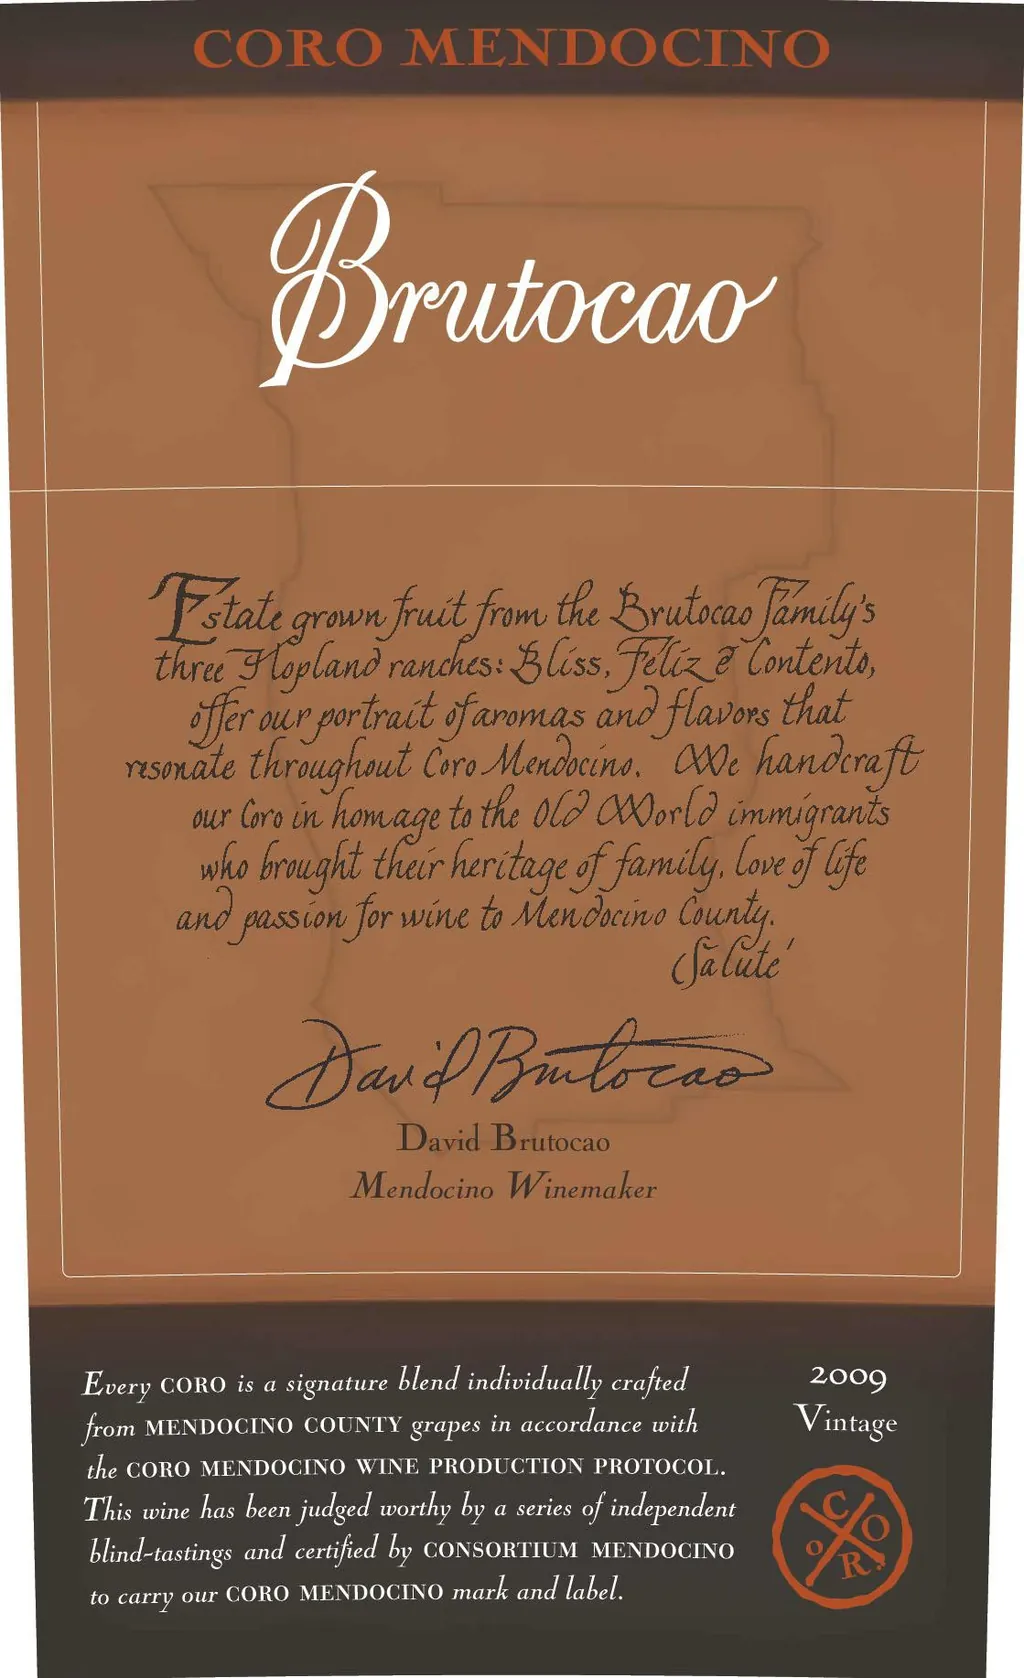 CORO MENDOCINO
Brutocao
Estate grown fruit from the Brutocao Family's
three Hopland ranches: Bliss, Feliz & Contento,
offer our portrait of aromas and flavors that
resonate throughout Coro Mendocino. We handcraft
our Coro in homage to the Old World immigrants
who brought their heritage of family, love of life
and passion for wine to Mendocino County.
Saluté
David Brutocao
David Brutocao
Mendocino Winemaker
Every CORO is a signature blend individually crafted
from MENDOCINO COUNTY grapes in accordance with
the CORO MENDOCINO WINE PRODUCTION PROTOCOL.
This wine has been judged worthy by a series of independent
blind-tastings and certified by CONSORTIUM MENDOCINO
to carry our CORO MENDOCINO mark and label.
2009
Vintage
CORO